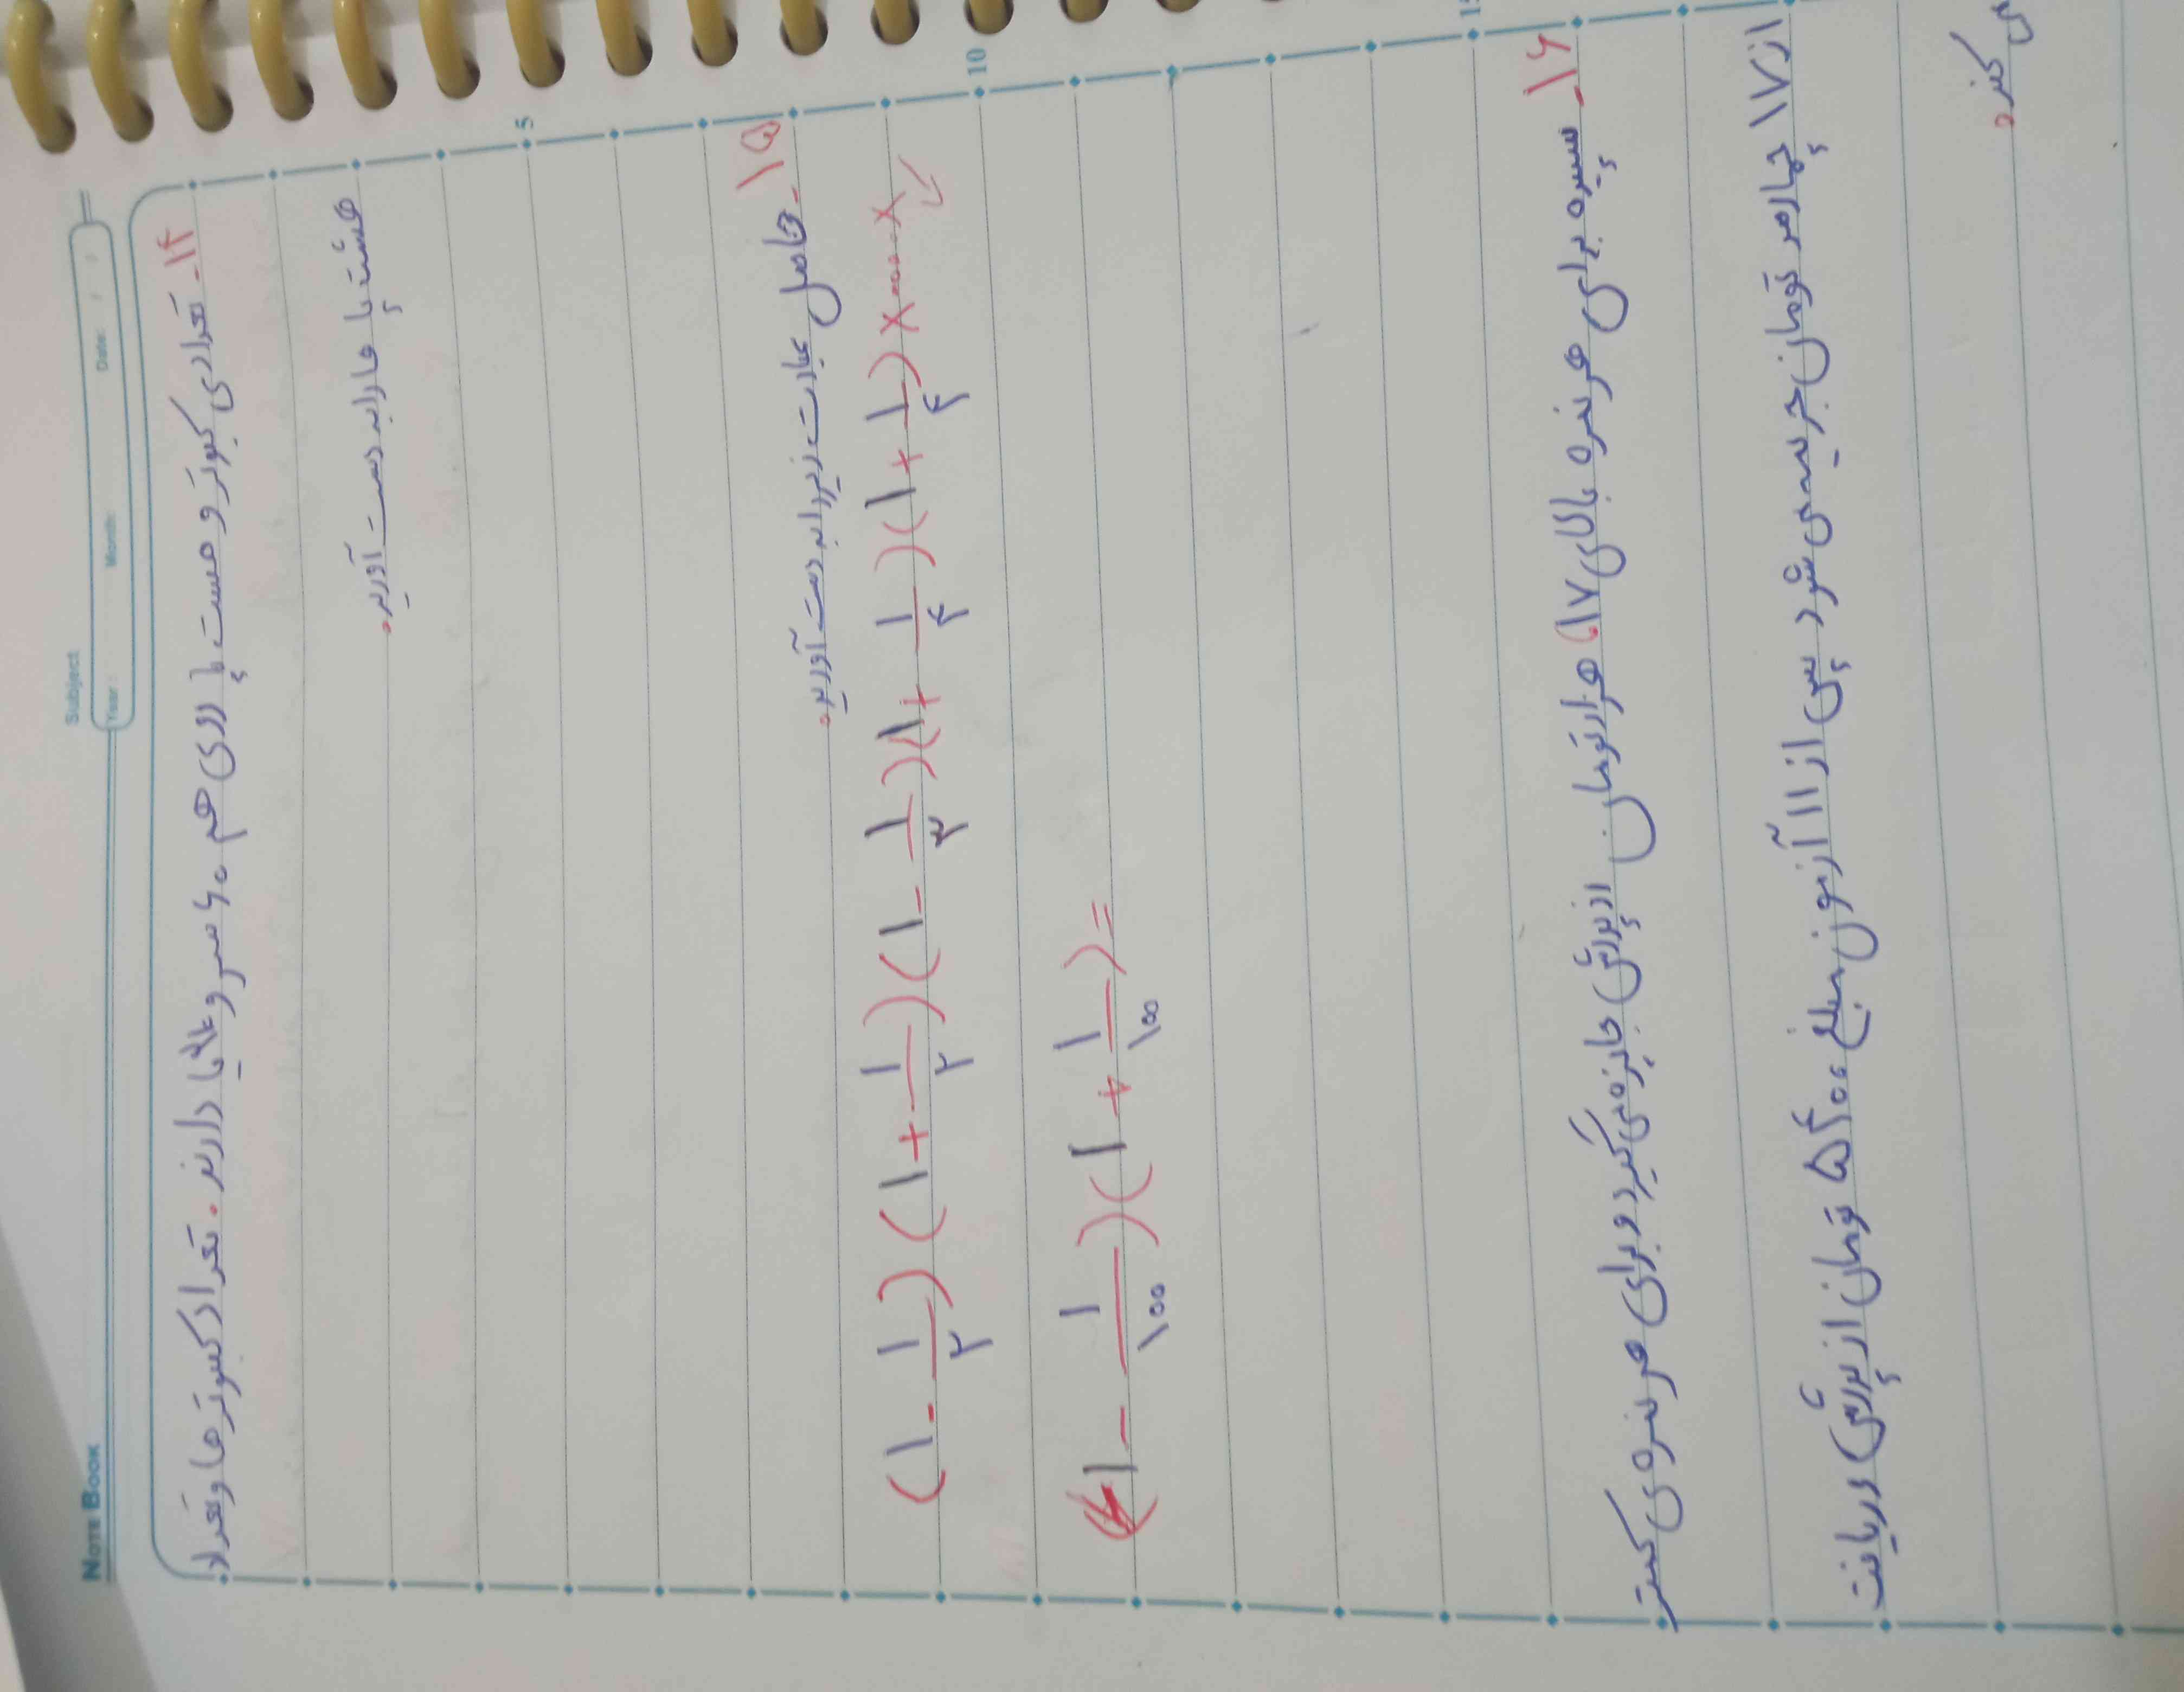 NOTE BOOK
Subject
Year: Month: Date: / /
۱۴- تعدادی کبوتر و هست پا روی هم ۶۰ سر و پا دارند. تعداد کبوتر ها و تعداد
هشت پا ها را به دست آورید.
5
۱۵- حاصل عبارت زیر را به دست آورید.
(۱ - ۱/۲)(۱ + ۱/۲)(۱ - ۱/۳)(۱ + ۱/۴)(۱ + ۱/۴) × .... ×
10
(۱ - ۱/۱۰۰)(۱ + ۱/۱۰۰) =
۱۶- سپیده برای هر نمره بالای ۱۷، هزار تومان از پدرش جایزه می گیرد و برای هر نمره ی کمتر
از ۱۷ چهارصد تومان جریمه می شود پس از ۱۱ آزمون مبلغ ۵۴۰۰ تومان از پدرش دریافت
می کند.